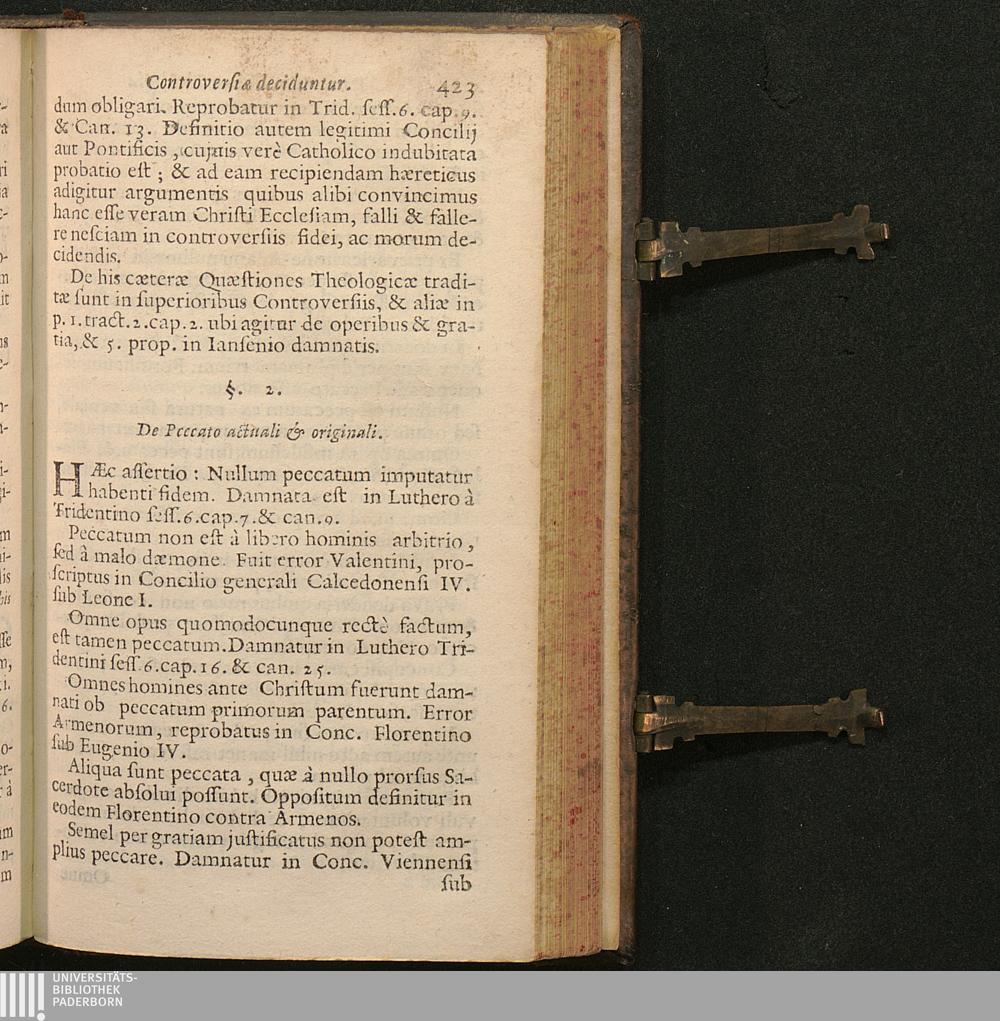 Controverſiæ deciduntur. 423
dum obligari. Reprobatur in Trid. ſeſſ. 6. cap. 9.
& Can. 13. Definitio autem legitimi Concilij
aut Pontificis, cujuis verè Catholico indubitata
probatio eſt; & ad eam recipiendam hæreticus
adigitur argumentis quibus alibi convincimus
hanc eſſe veram Chriſti Eccleſiam, falli & falle-
re neſciam in controverſiis fidei, ac morum de-
cidendis.
De his cæteræ Quæſtiones Theologicæ tradi-
tæ ſunt in ſuperioribus Controverſiis, & aliæ in
p. 1. tract. 2. cap. 2. ubi agitur de operibus & gra-
tia, & 5. prop. in Ianſenio damnatis.
§. 2.
De Peccato actuali & originali.
HÆc aſſertio : Nullum peccatum imputatur
habenti fidem. Damnata eſt in Luthero à
Tridentino ſeſſ. 6. cap. 7. & can. 9.
Peccatum non eſt à libero hominis arbitrio,
ſed à malo dæmone. Fuit error Valentini, pro-
ſcriptus in Concilio generali Calcedonenſi IV.
ſub Leone I.
Omne opus quomodocunque rectè factum,
eſt tamen peccatum. Damnatur in Luthero Tri-
dentini ſeſſ. 6. cap. 16. & can. 25.
Omnes homines ante Chriſtum fuerunt dam-
nati ob peccatum primorum parentum. Error
Armenorum, reprobatus in Conc. Florentino
ſub Eugenio IV.
Aliqua ſunt peccata, quæ à nullo prorſus Sa-
cerdote abſolui poſſunt. Oppoſitum definitur in
eodem Florentino contra Armenos.
Semel per gratiam juſtificatus non poteſt am-
plius peccare. Damnatur in Conc. Viennenſi
ſub
UNIVERSITÄTS-
BIBLIOTHEK
PADERBORN